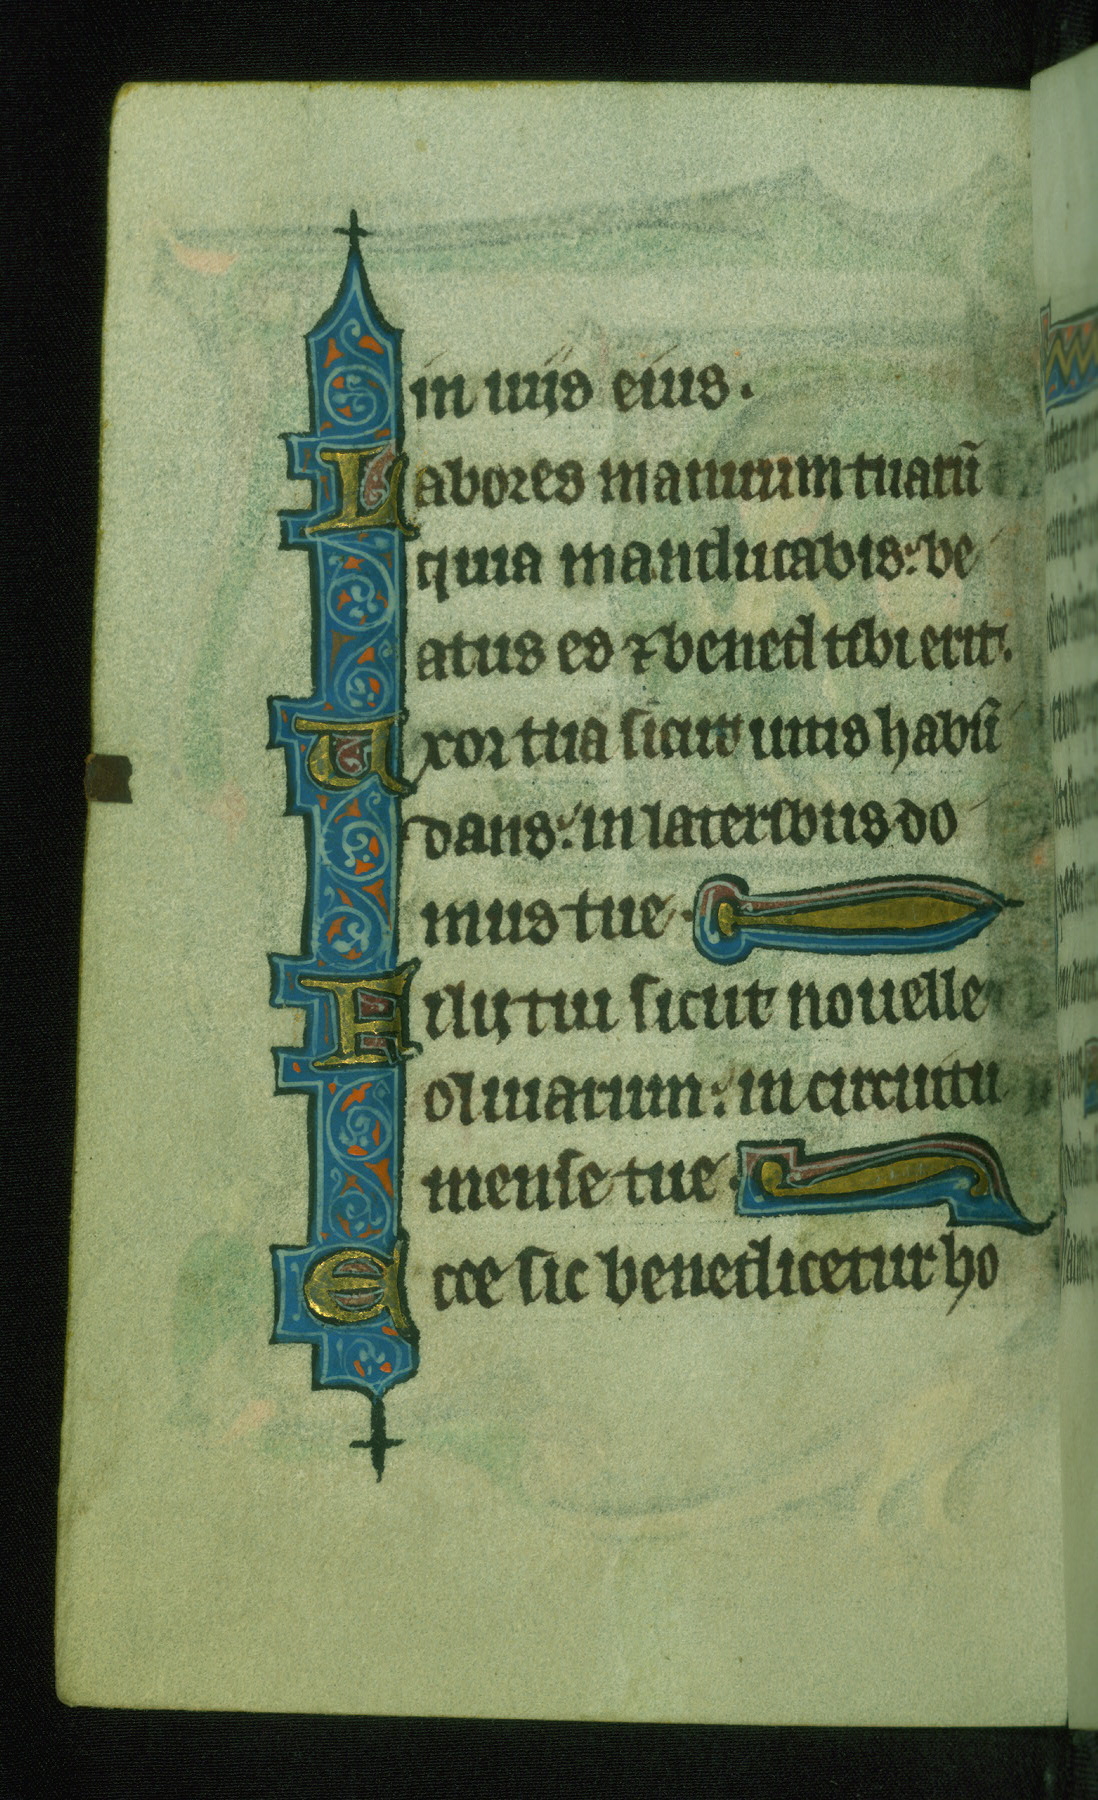 in uijs eius.
Labores manuum tuarū
quia manducabis: be
atus es ⁊ bened tibi erit.
Uxor tua sicut uitis habū
dans: in lateribus do
mus tue.
Filij tui sicut nouelle
oliuarum: in circuitu
mense tue.
Ecce sic benedicetur ho